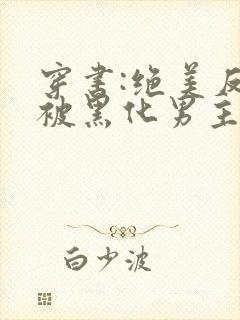 穿书:绝美反
被黑化男主
白少波